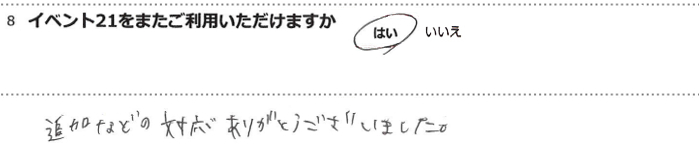 8 イベント21をまたご利用いただけますか はい いいえ
追加などの対応ありがとうございました。